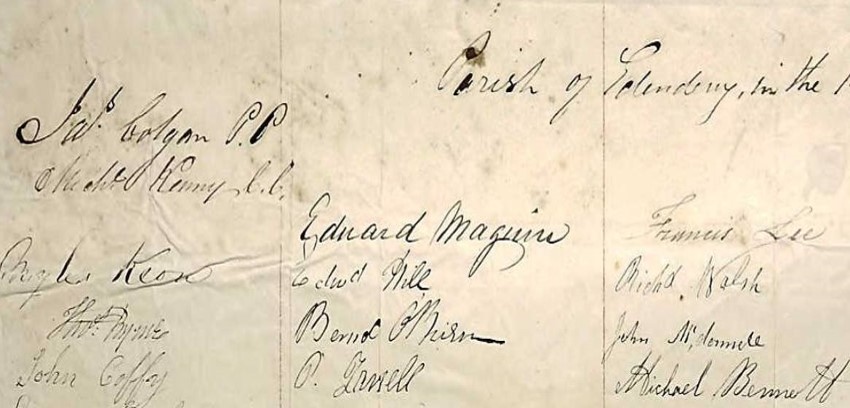 Parish of Edenderry, in the
Jas. Colgan P.P
Michl. Kenny C.C.
Edward Maguire
Francis Lee
Keon
Edwd Hill
Richd Walsh
Thos. Byrne
Bernd O'Beirn
John McDonnell
John Coffy
P. Farrell
Michael Bennett